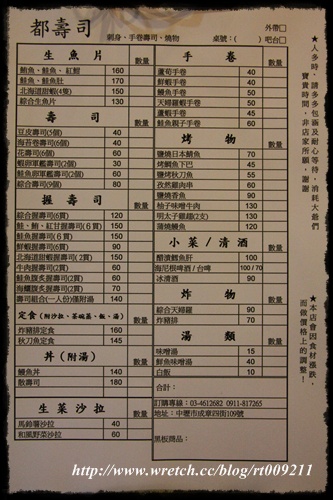 都壽司
刺身、手卷壽司、燒物
外帶□
桌號:( )吧台□
生魚片 數量
鮪魚、鮭魚、紅魽 160
鮭魚、鮭魚肚 170
北海道甜蝦(4隻) 150
綜合生魚片 130
壽司 數量
豆皮壽司(5個) 40
海苔卷壽司(6個) 40
花壽司(6個) 60
蝦卵軍艦壽司(2個) 30
鮭魚卵軍艦壽司(2個) 60
綜合壽司(9個) 80
握壽司 數量
綜合握壽司(6貫) 120
鮭、鮪、紅甘握壽司(6貫) 150
鮭魚握壽司(6貫) 150
鮮蝦握壽司(6貫) 90
北海道甜蝦握壽司(2貫) 120
牛肉握壽司(2貫) 60
鮭魚腹炙握壽司(2貫) 60
海鱺腹炙握壽司(2貫) 70
壽司組合(一人份)僅附湯 140
定食(附沙拉、茶碗蒸、飯、湯) 數量
炸豬排定食 160
秋刀魚定食 145
丼(附湯) 數量
鰻魚丼 140
散壽司 180
生菜沙拉 數量
馬鈴薯沙拉 40
和風野菜沙拉 60
手卷 數量
蘆筍手卷 40
鮮蝦手卷 40
鰻魚手卷 50
天婦羅蝦手卷 60
蘆蝦手卷 45
鮭魚親子手卷 60
烤物 數量
鹽燒日本鯖魚 70
烤鯛魚下巴 45
鹽燒秋刀魚 55
孜然雞肉串 60
鹽燒香魚 90
柚子味噌牛肉 130
明太子雞翅(2支) 130
蒲燒鰻魚 120
小菜/清酒 數量
醋漬鱈魚肝 100
海尼根啤酒/台啤 100/70
冰清酒 90
炸物 數量
綜合天婦羅 90
炸豬排 70
湯類 數量
味噌湯 15
鮮魚味噌湯 40
白飯 10
合計:
訂購專線:03-4612682 0911-817265
地址:中壢市成章四街109號
黑板商品:
★人多時,請多多包涵及耐心等待,消耗大爺們
寶貴時間,非店家所願,謝謝
★本店會因食材漲跌,
而做價格上的調整!
http://www.wretch.cc/blog/rt009211